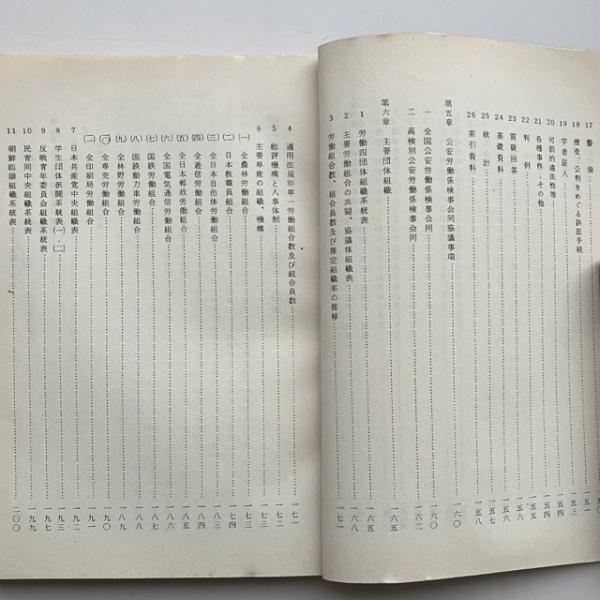 17 警備……一五〇
18 捜査、公判をめぐる訴訟手続……一五一
19 学者証人……一五三
20 可罰的違法性等……一五四
21 各種事件、その他……一五五
22 判例……一五六
23 質疑回答……一五六
24 基礎資料……一五六
25 統計……一五七
26 索引資料……一五八
第五章 公安労働係検事会同協議事項……一六〇
一 全国公安労働係検事会同……一六〇
二 高検別公安労働係検事会同……一六二
第六章 主要団体組織……一六五
1 労働四団体組織系統表……一六五
2 主要労働組合の共闘、協議体組織表……一六八
3 労働組合数、組合員数及び推定組織率の推移……一七一
4 適用法規別単一労働組合数及び組合員数……一七一
5 総評機構と人事体制……一七二
6 主要単産の組織、機構……一七三
(一) 全農林労働組合……一七三
(二) 日本教職員組合……一七四
(三) 全日本自治体労働組合……一七六
(四) 全逓信労働組合……一八四
(五) 全日本郵政労働組合……一八五
(六) 全国電気通信労働組合……一八六
(七) 国鉄労働組合……一八七
(八) 国鉄動力車労働組合……一八八
(九) 全林野労働組合……一八九
(一〇) 全専売労働組合……一九〇
(一一) 全印刷局労働組合……一九一
7 日本共産党中央組織表……一九二
8 学生団体派閥系統表(一)・(二)……一九三
9 反戦青年委員会組織系統表……一九七
10 民青同中央組織系統表……一九九
11 朝鮮総聯組織系統表……二〇〇